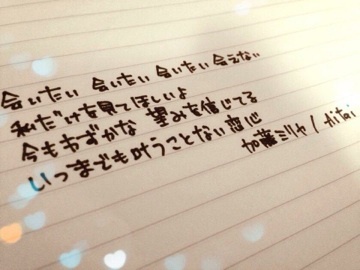 会いたい 会いたい 会いたい 会えない
私だけを見てほしいよ
今もわずかな 望みを信じてる
いつまでも叶うことない恋心
加藤ミリヤ / Aitai